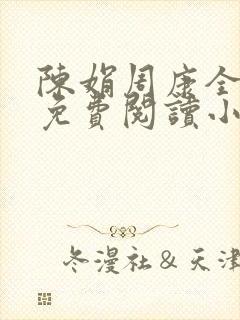 陳娟周康全
免費閱讀小
冬漫社&天津